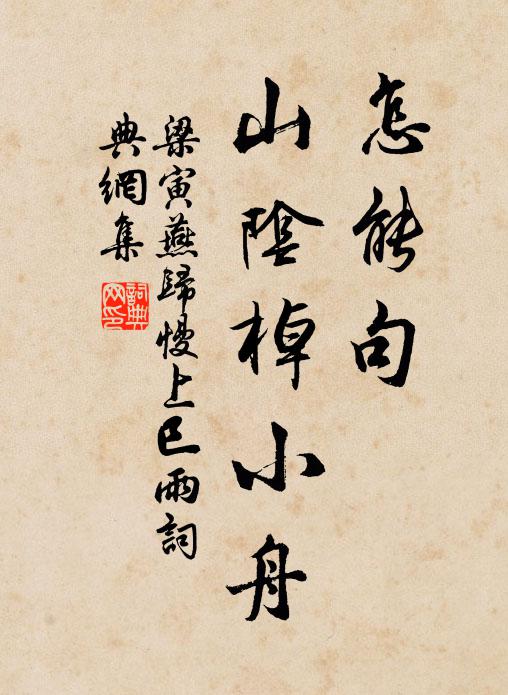 怎能句
山陰棹小舟
梁寅燕歸慢上巳雨詞
典網集
詞典網印